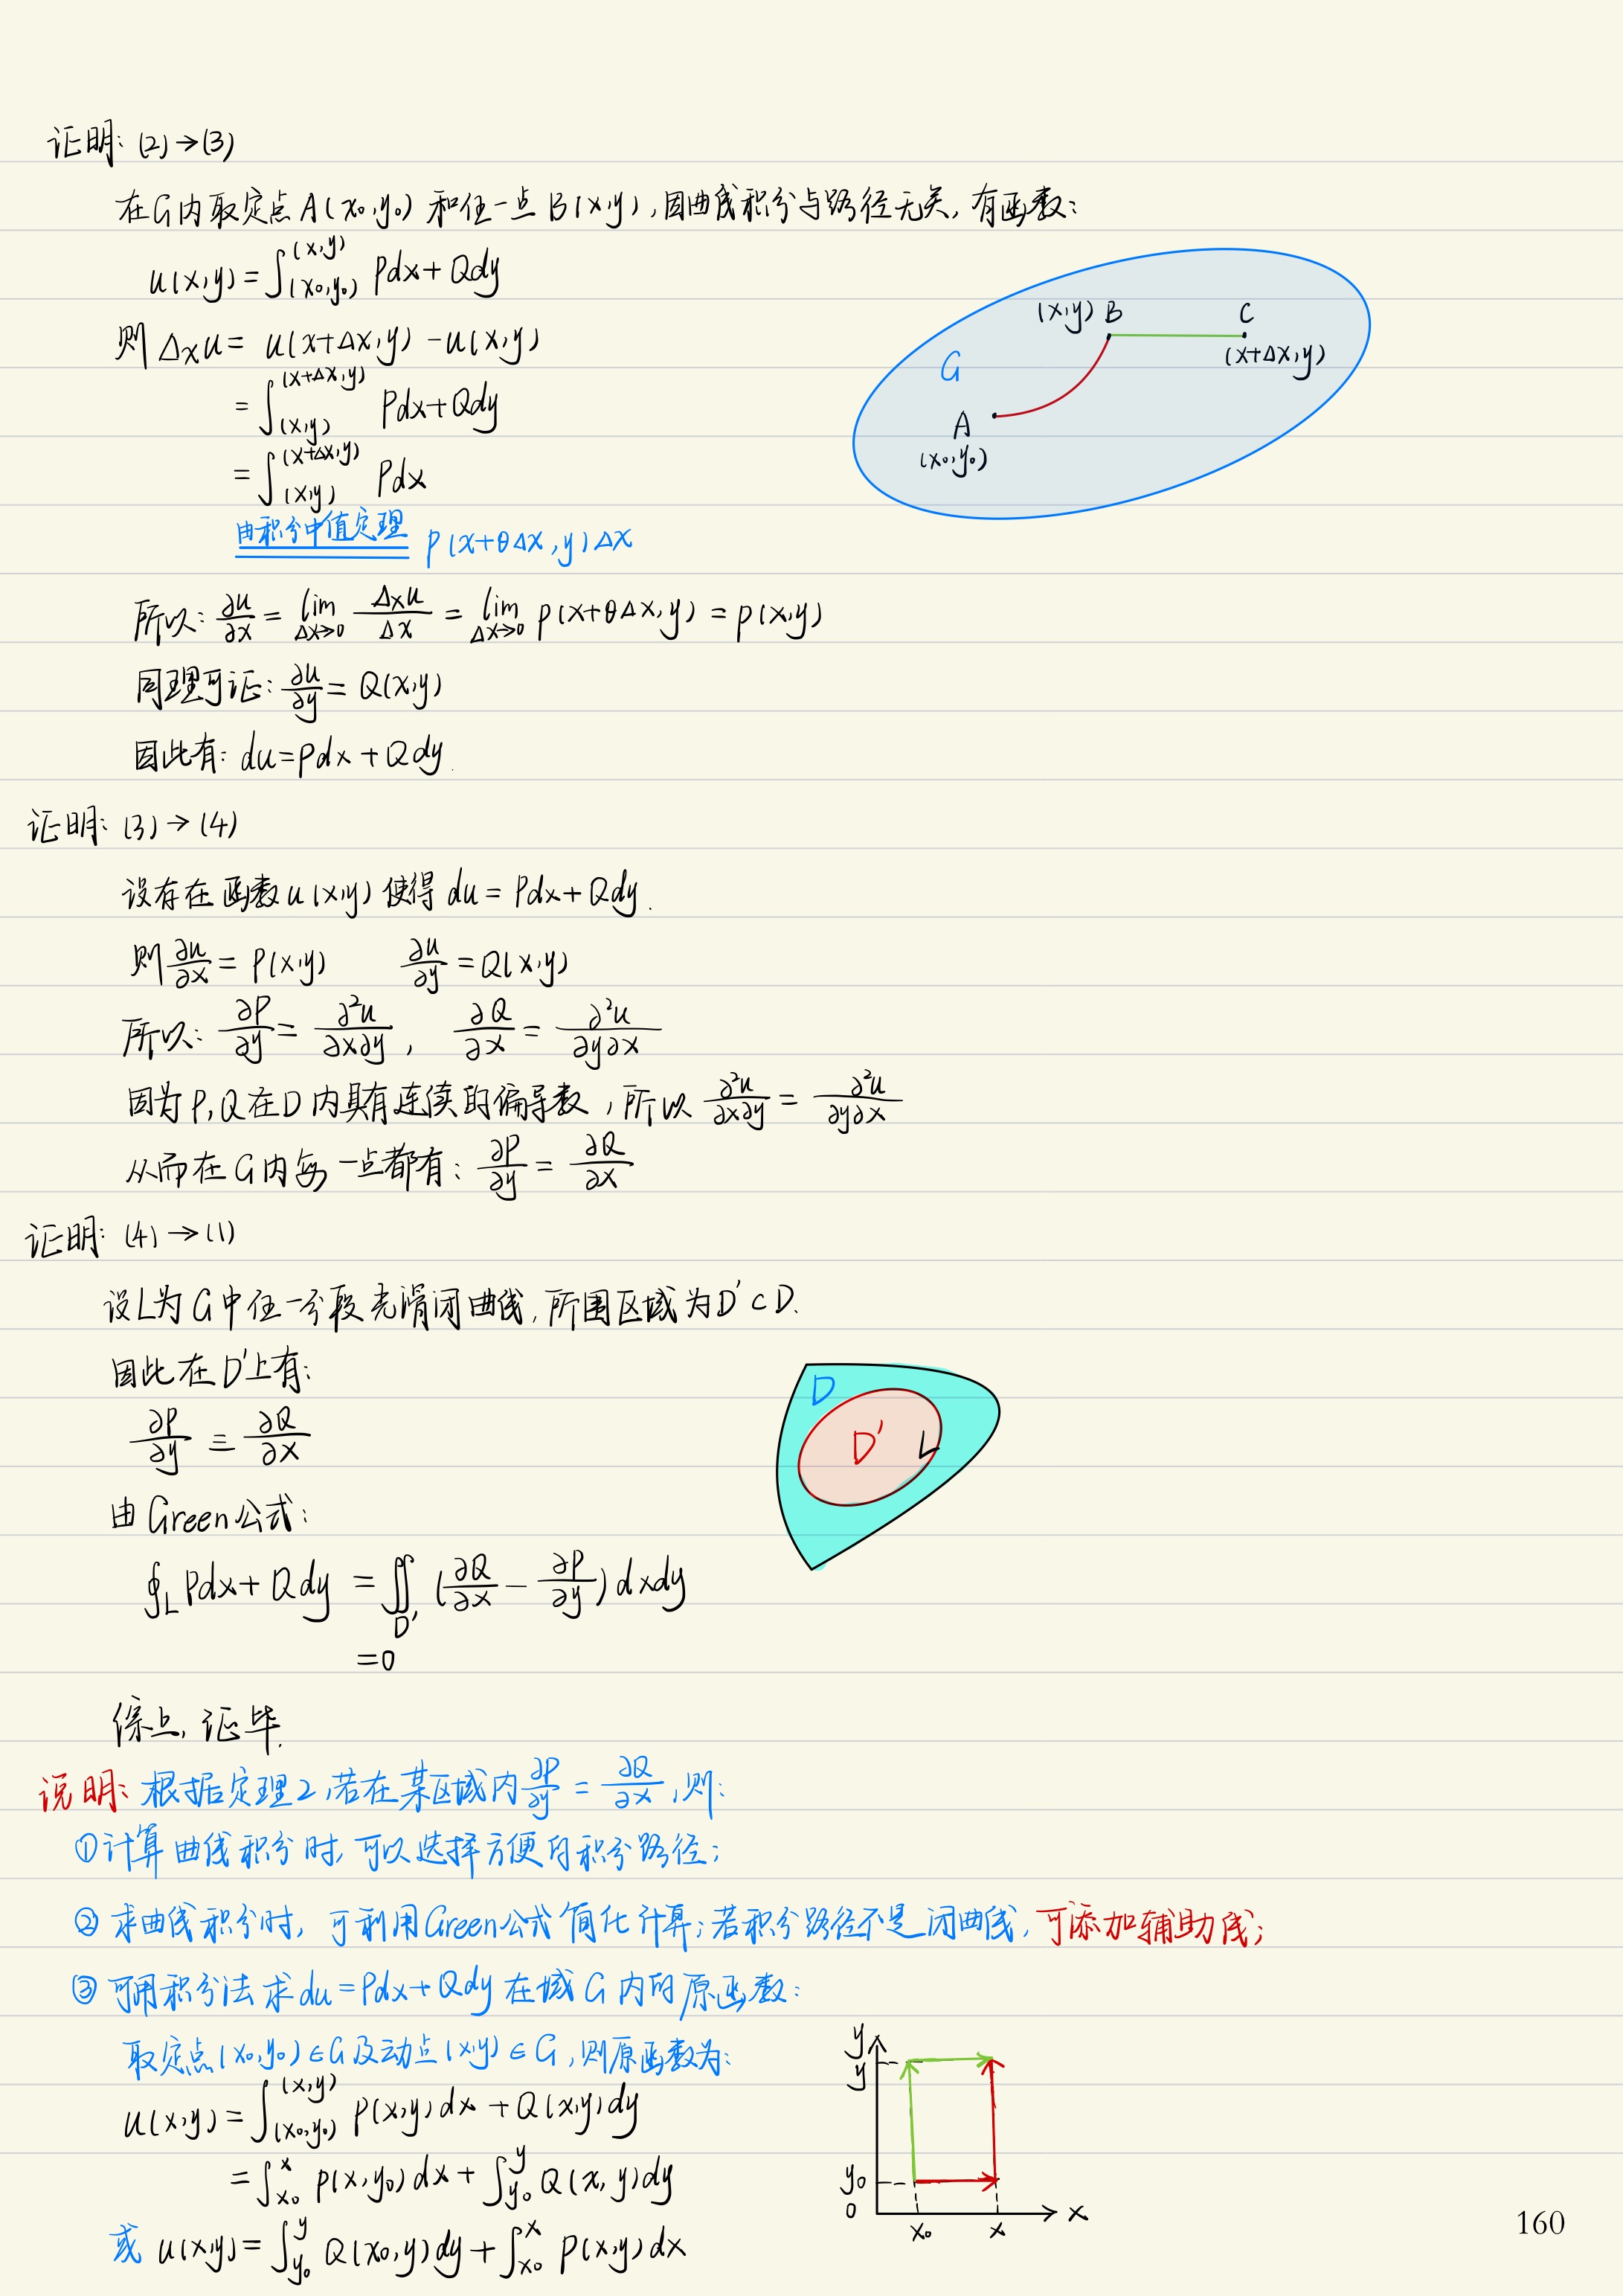 证明: (2)→(3)
在G内取定点A(x₀,y₀) 和任一点B(x,y), 因曲线积分与路径无关, 有函数:
u(x,y) = ∫_{(x₀,y₀)}^{(x,y)} Pdx+Qdy
则 Δₓu = u(x+Δx,y) - u(x,y)
= ∫_{(x,y)}^{(x+Δx,y)} Pdx+Qdy
= ∫_{(x,y)}^{(x+Δx,y)} Pdx
由积分中值定理 P(x+θΔx,y)Δx
(x,y) B
C
(x+Δx,y)
G
A
(x₀,y₀)
所以: ∂u/∂x = lim_{Δx→0} Δₓu/Δx = lim_{Δx→0} P(x+θΔx,y) = P(x,y)
同理可证: ∂u/∂y = Q(x,y)
因此有: du=Pdx+Qdy.
证明: (3)→(4)
设存在函数u(x,y) 使得 du = Pdx+Qdy.
则 ∂u/∂x = P(x,y) ∂u/∂y = Q(x,y)
所以: ∂P/∂y = ∂²u/∂x∂y, ∂Q/∂x = ∂²u/∂y∂x
因为P,Q在D内具有连续的偏导数, 所以 ∂²u/∂x∂y = ∂²u/∂y∂x
从而在G内每一点都有: ∂P/∂y = ∂Q/∂x
证明: (4)→(1)
设L为G中任一分段光滑闭曲线, 所围区域为D'⊂D.
因此在D'上有:
∂P/∂y ≡ ∂Q/∂x
由Green公式:
∮_L Pdx+Qdy = ∬_{D'} (∂Q/∂x - ∂P/∂y) dxdy
=0
D
D'
L
综上, 证毕.
说明: 根据定理2, 若在某区域内 ∂P/∂y = ∂Q/∂x, 则:
①计算曲线积分时, 可以选择方便的积分路径;
② 求曲线积分时, 可利用Green公式简化计算; 若积分路径不是闭曲线, 可添加辅助线;
③ 可用积分法求du=Pdx+Qdy在域G内的原函数:
取定点(x₀,y₀)∈G及动点(x,y)∈G, 则原函数为:
u(x,y) = ∫_{(x₀,y₀)}^{(x,y)} P(x,y)dx+Q(x,y)dy
= ∫_{x₀}^{x} P(x,y₀)dx+∫_{y₀}^{y} Q(x,y)dy
或 u(x,y) = ∫_{y₀}^{y} Q(x₀,y)dy+∫_{x₀}^{x} P(x,y)dx
y
y
y₀
0
x₀
x
x
160